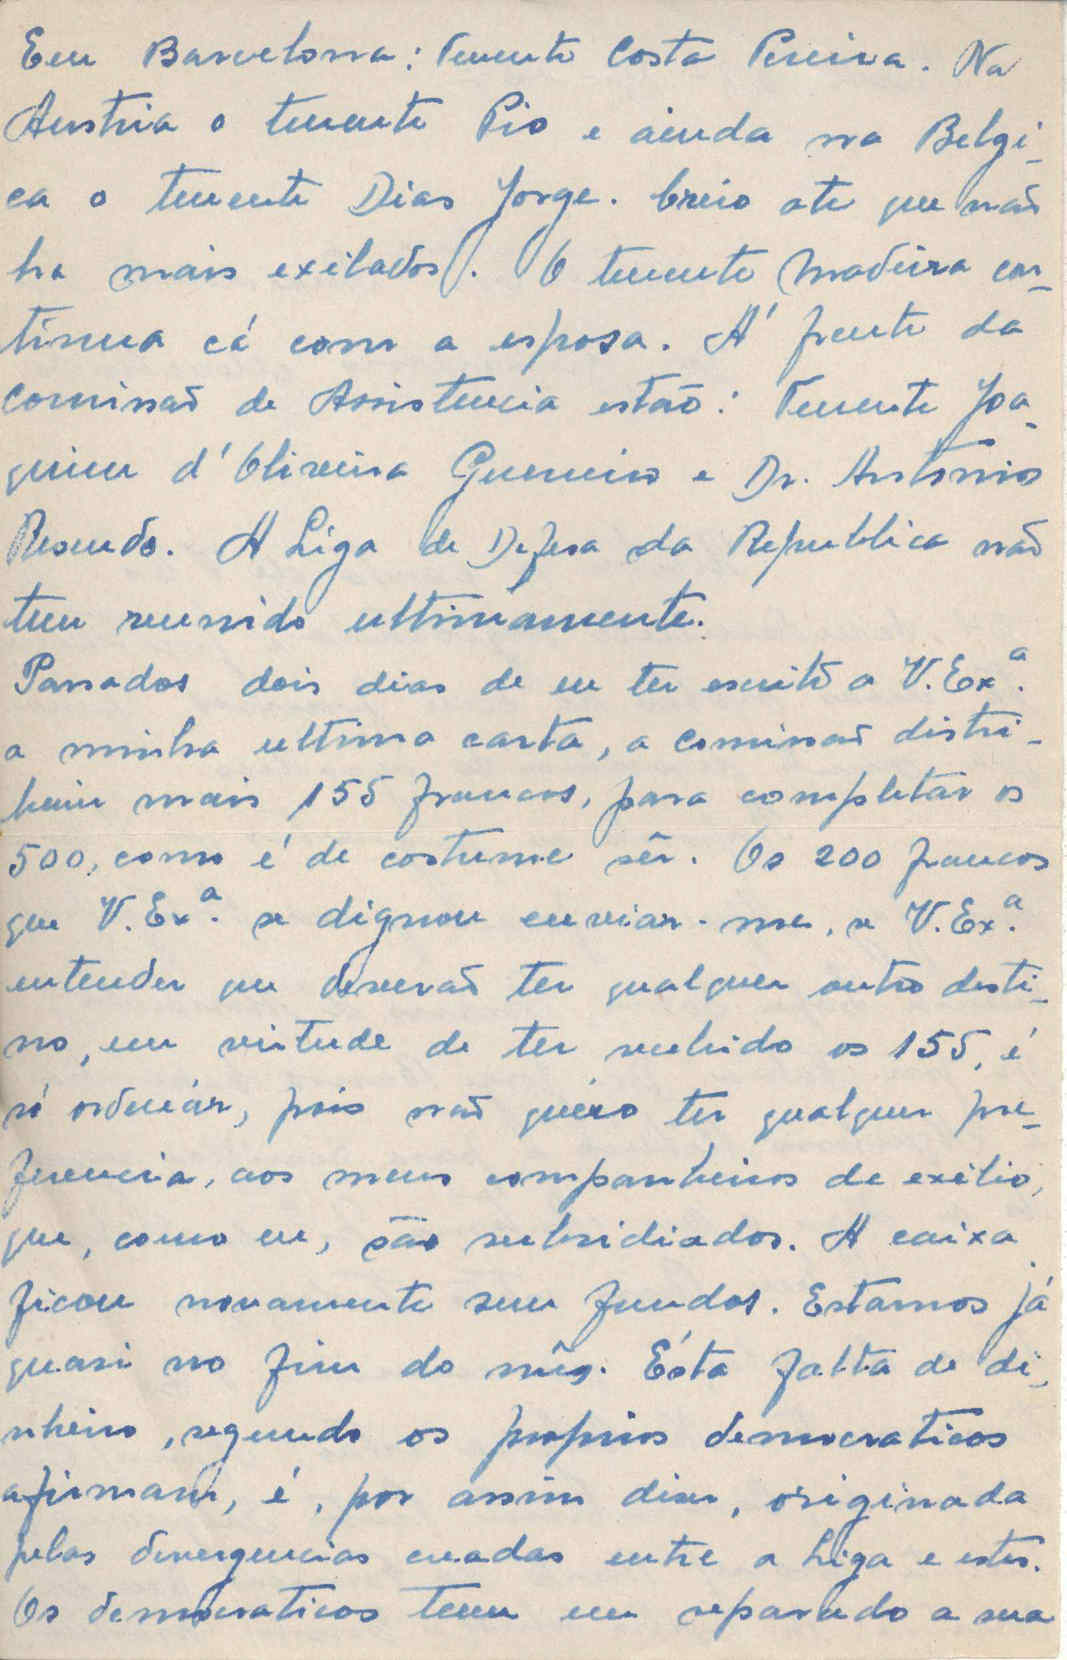 Em Barcelona: Tenente Costa Pereira. Na
Austria o tenente Pio e ainda na Belgi-
ca o tenente Dias Jorge. Creio ate que não
ha mais exilados. O tenente Madeira con-
tinua cá com a esposa. A' frente da
Comissão de Assistencia estão: Tenente Joa-
quim d'Oliveira Guerreiro e Dr. Antonio
Resende. A Liga de Defesa da Republica não
tem reunido ultimamente.
Passados dois dias de eu ter escrito a V. Exª.
a minha ultima carta, a comissão distri-
buiu mais 155 francos, para completar os
500, como é de costume sêr. Os 200 francos
que V. Exª. se dignou enviar-me, se V. Exª.
entender que deverão ter qualquer outro desti-
no, em virtude de ter recebido os 155, é
só ordenár, pois não quéro ter qualquer pre-
ferencia, aos meus companheiros de exilio,
que, como eu, são subsidiados. A caixa
ficou novamente sem fundos. Estamos já
quasi no fim do mês. Ésta falta de di-
nheiro, segundo os proprios democraticos
afirmam, é, por assim diser, originada
pelas divergencias creadas entre a Liga e estes.
Os democraticos teem em separado a sua